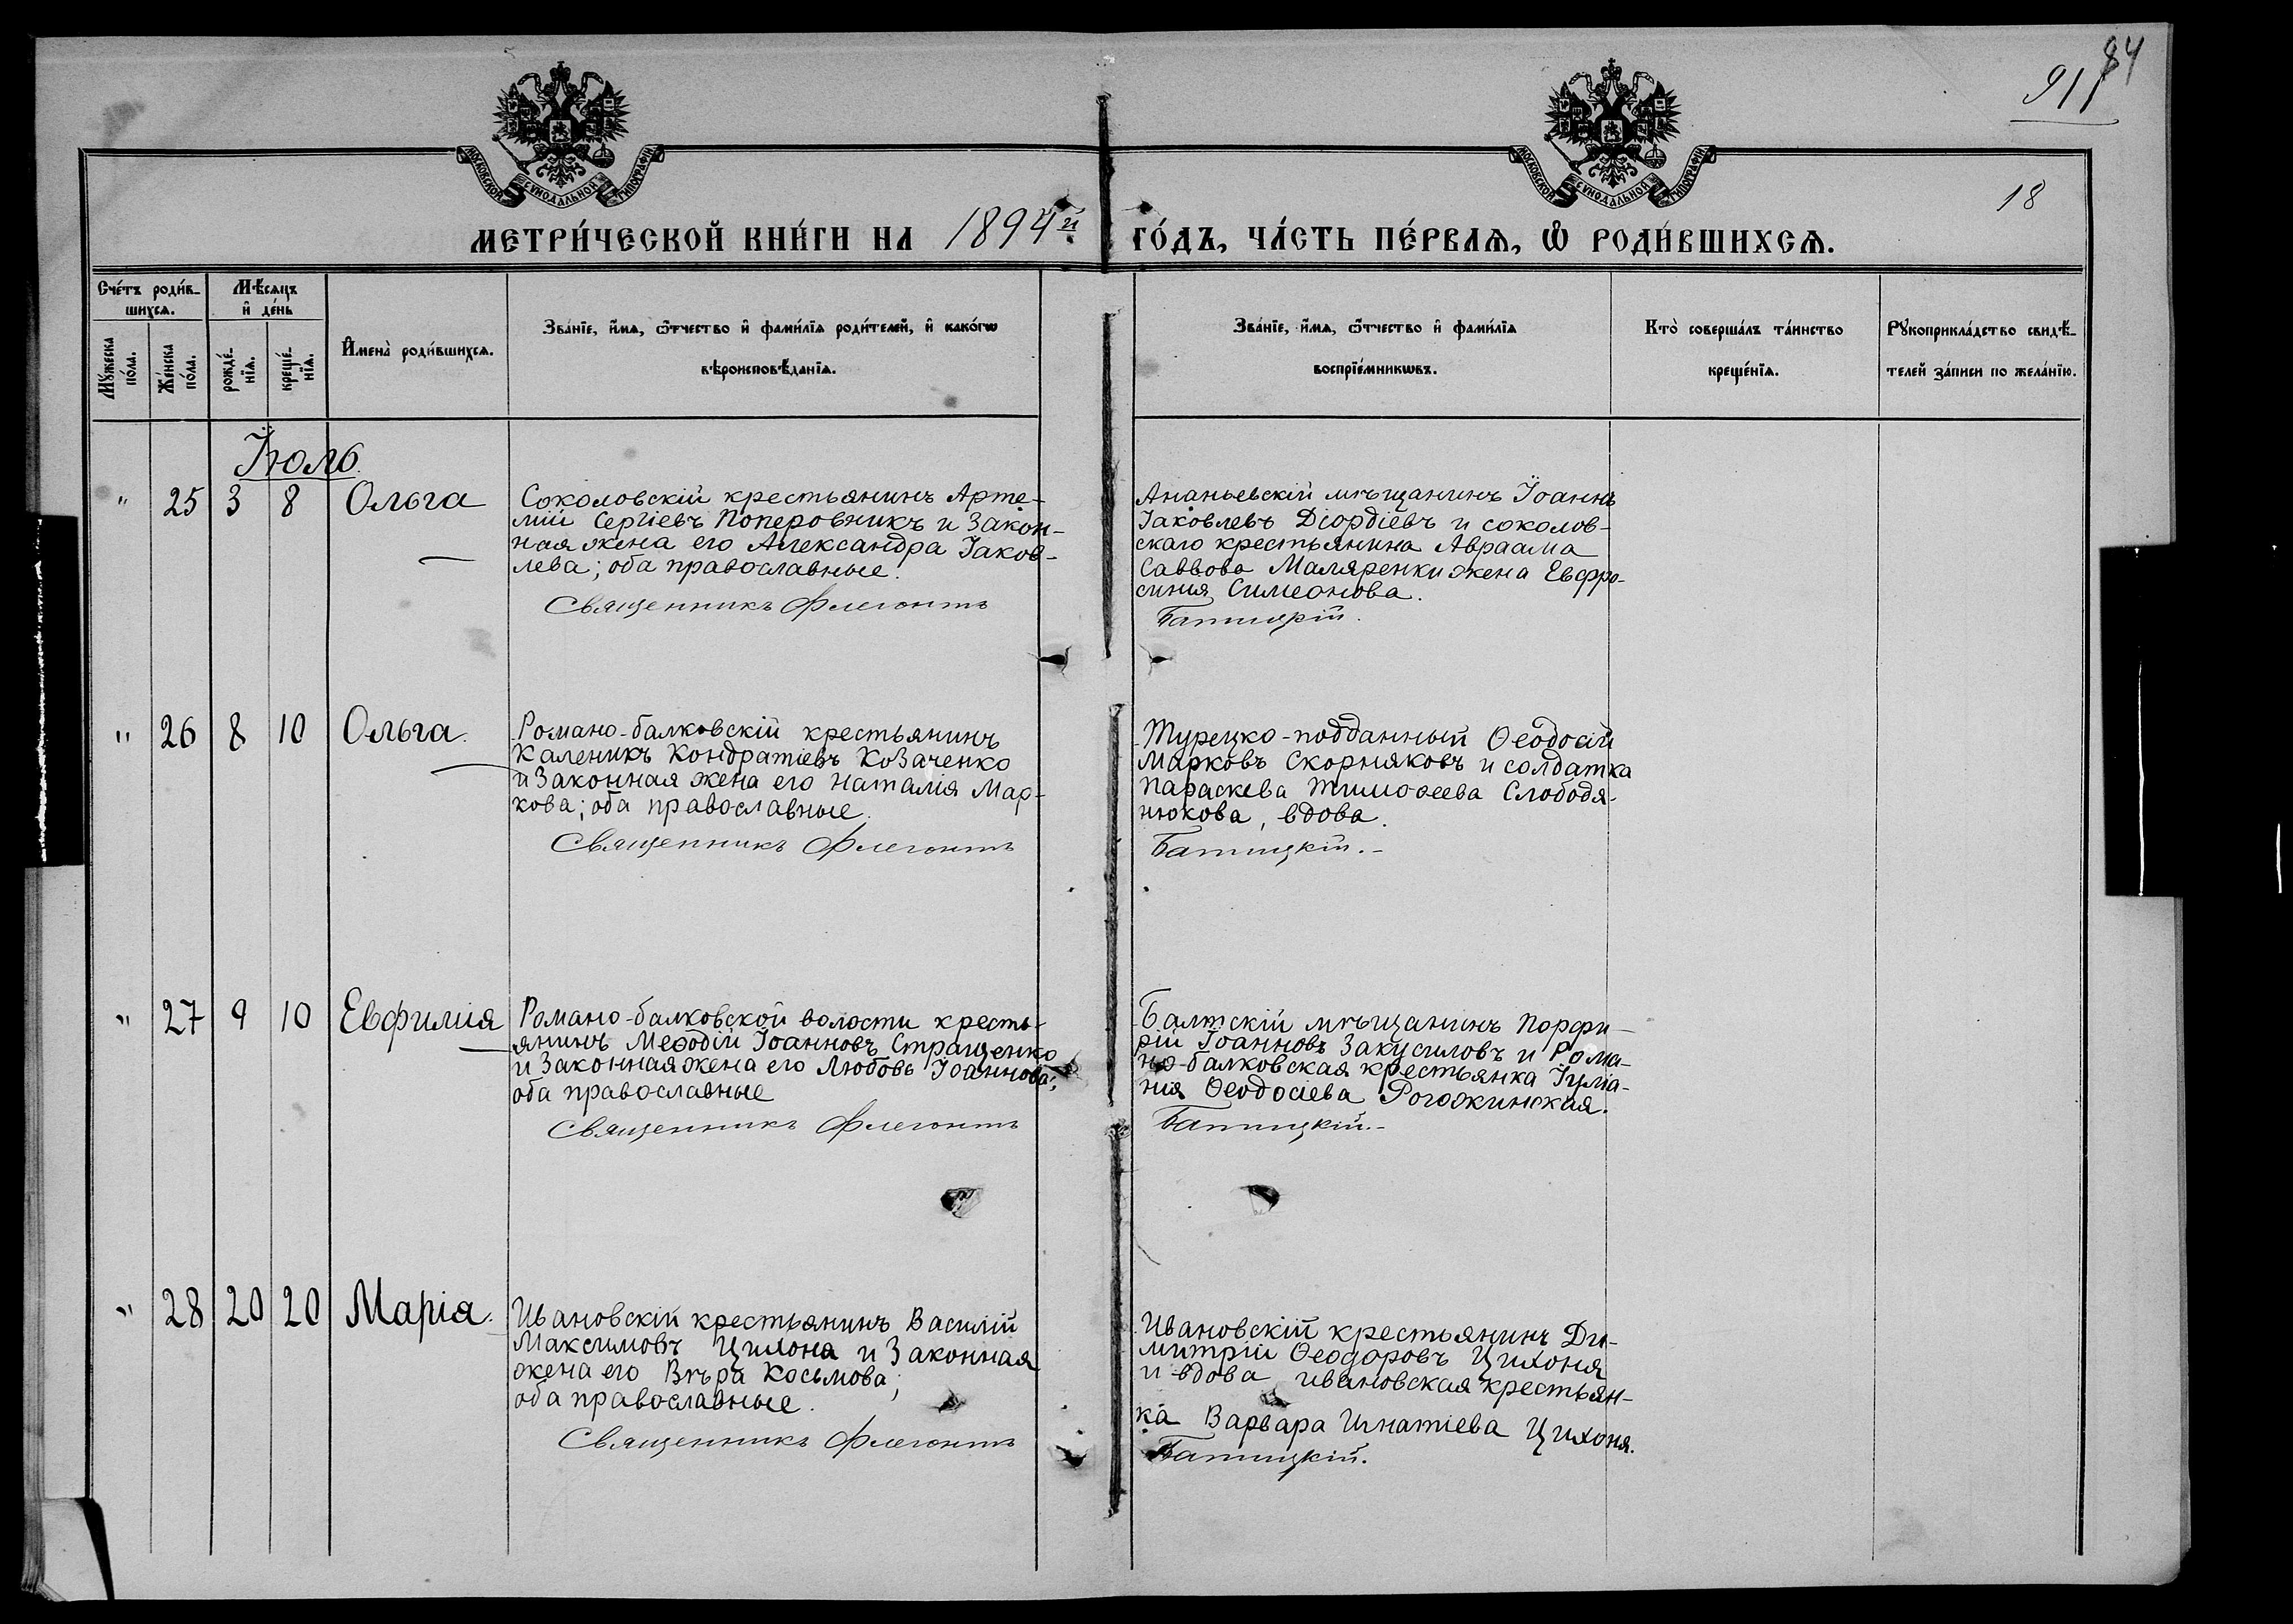 84
91
18
МОСКОВСКОЙ СѴНОДАЛЬНОЙ ТИПОГРАФІИ
МОСКОВСКОЙ СѴНОДАЛЬНОЙ ТИПОГРАФІИ
МЕТРИ́ЧЕСКОЙ КНИ́ГИ НА 1894й ГО́ДЪ, ЧА́СТЬ ПЕ́РВАѦ, Ѽ РОДИ́ВШИХСѦ.
Сче́тъ роди́в-
шихсѧ.
Мѣ́сѧцъ
и҆ де́нь
Мꙋ́жеска по́ла.
Же́нска по́ла.
рожде́-нїѧ.
креще́-нїѧ.
И҆мена̀ роди́вшихсѧ.
Зва́нїе, и҆́мѧ, ѻ҆́тчество и҆ фами́лїѧ роди́телей, и҆ како́гѡ
вѣроисповѣ́данїѧ.
Зва́нїе, и҆́мѧ, ѻ҆́тчество и҆ фами́лїѧ
воспрїе́мникѡвъ.
Кто̀ соверша́лъ та́инство
креще́нїѧ.
Рꙋкоприкла́дство свидѣ́-
телей за́писи по жела́нїю.
Їюль
" 25 3 8 Ольга
Соколовскій крестьянинъ Арте-
мій Сергіевъ Поперовникъ и закон-
ная жена его Александра Іаков-
лева; оба православные.
Священникъ Флегонтъ
Ананьевскій мѣщанинъ Їоаннъ
Іаковлевъ Діордіевъ и соколов-
скаго крестьянина Авраама
Саввова Маляренки жена Евфро-
синія Симеонова.
Батицкій.
" 26 8 10 Ольга.
Романо-балковскій крестьянинъ
Каленикъ Кондратіевъ Козаченко
и законная жена его Наталія Мар-
кова; оба православные.
Священникъ Флегонтъ
Турецко-подданный Ѳеодосій
Марковъ Скорняковъ и солдатка
Параскева Тимоѳеева Слободя-
нюкова, вдова.
Батицкій.-
" 27 9 10 Евфимія
Романо-балковской волости кресть-
янинъ Меѳодій Іоанновъ Стращенко
и законная жена его Любовь Іоаннова;
оба православные
Священникъ Флегонтъ
Балтскій мѣщанинъ Порфи-
рій Іоанновъ Закусиловъ и Рома-
но-балковская крестьянка Іуліа-
нія Ѳеодосіева Рогожинская.
Батицкій.-
" 28 20 20 Марія.
Ивановскій крестьянинъ Василій
Максимовъ Цихоня и законная
жена его Вѣра Косьмова;
оба православные.
Священникъ Флегонтъ
Ивановскій крестьянинъ Ди-
митрій Ѳеодоровъ Цихоня
и вдова ивановская крестьян-
ка Варвара Игнатіева Цихоня.
Батицкій.